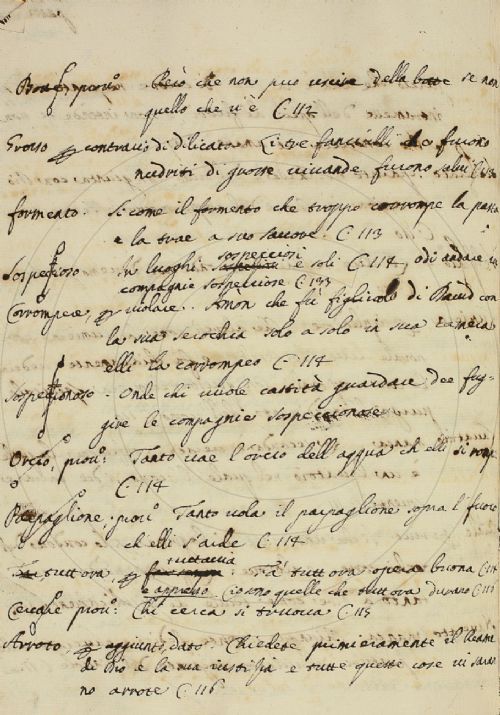 Però che non puo uscire della botte se non
quello che ui è C. 112
Grosso contrario di dilicato Li tre fanciulli che furono
nudriti di grosse uiuande furono salui
formento. Si come il formento che troppo corrompe la pasta
e la trae a suo sauore. C. 113
Sospeccioso In luoghi sospecciosi e soli C. 114, odi andare in
compagnie sospecciose C. 133
Corrompere uiolare. Amon che fù figliuolo di Dauid con
la sua serocchia solo a solo in sua camera
elli la corrompeo C. 114
Sospeccionoso. Onde chi uuole castità guardare dee fug-
gire le compagnie sospeccionose
Orcio, prou: Tanto uae l'orcio dell'acqua ch'elli si romp
C. 114
Parpaglione, prou. Tanto uola il parpaglione sopra l'fuoco
ch'elli s'arde C. 114
tuttauia
tutt'ora Fa tutt'ora opera buona C. 114
e appresso ciò sono quelle che tutt'ora durano C. 111
Cercare prou: Chi cerca si truoua C. 115
Arroto, aggiunto, dato. Chiedete primieramente il Reame
di Dio e la sua iustizia e tutte queste cose ui saran
no arrote C. 116